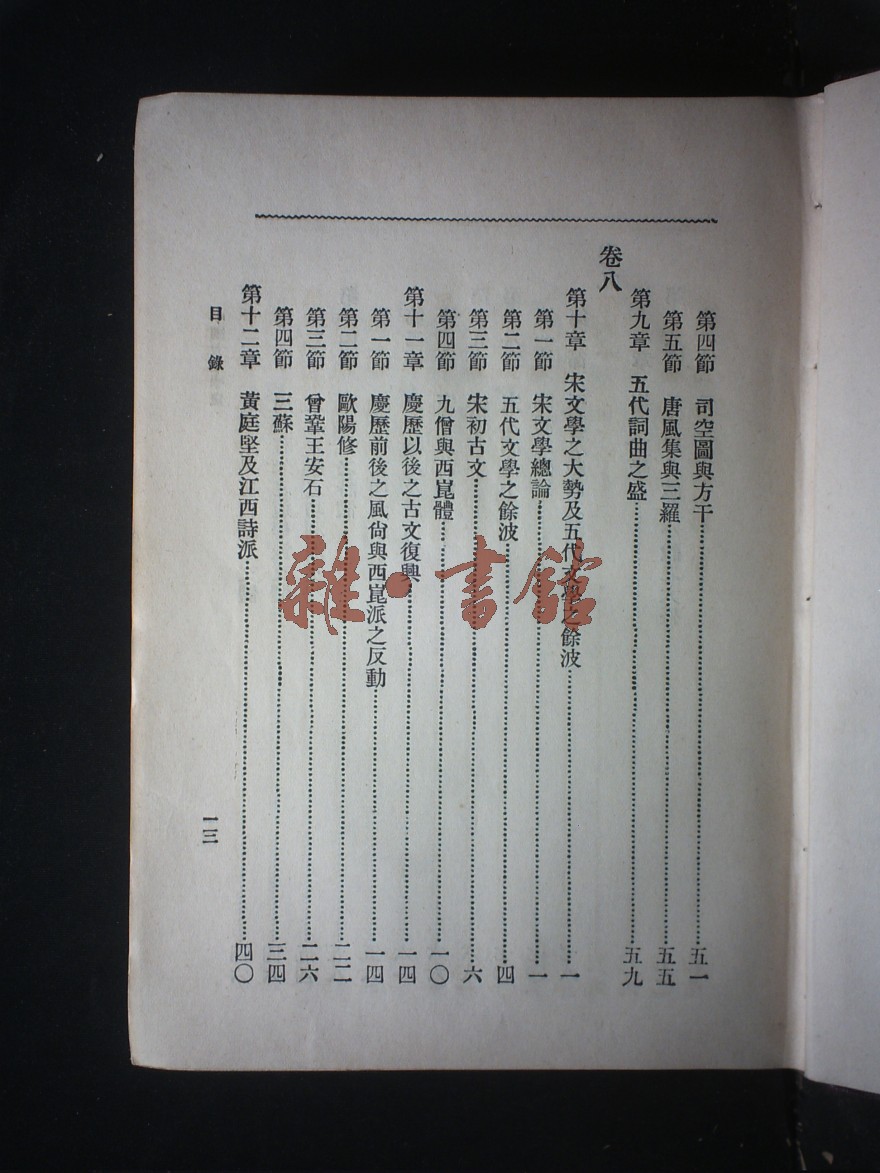 第四節 司空圖與方干……五一
第五節 唐風集與三羅……五五
第九章 五代詞曲之盛……五九
卷八
第十章 宋文學之大勢及五代文學之餘波……一
第一節 宋文學總論……一
第二節 五代文學之餘波……四
第三節 宋初古文……六
第四節 九僧與西崑體……一〇
第十一章 慶歷以後之古文復興……一四
第一節 慶歷前後之風尙與西崑派之反動……一四
第二節 歐陽修……二二
第三節 曾鞏王安石……二六
第四節 三蘇……三四
第十二章 黃庭堅及江西詩派……四〇
目錄
一三
雜·書館